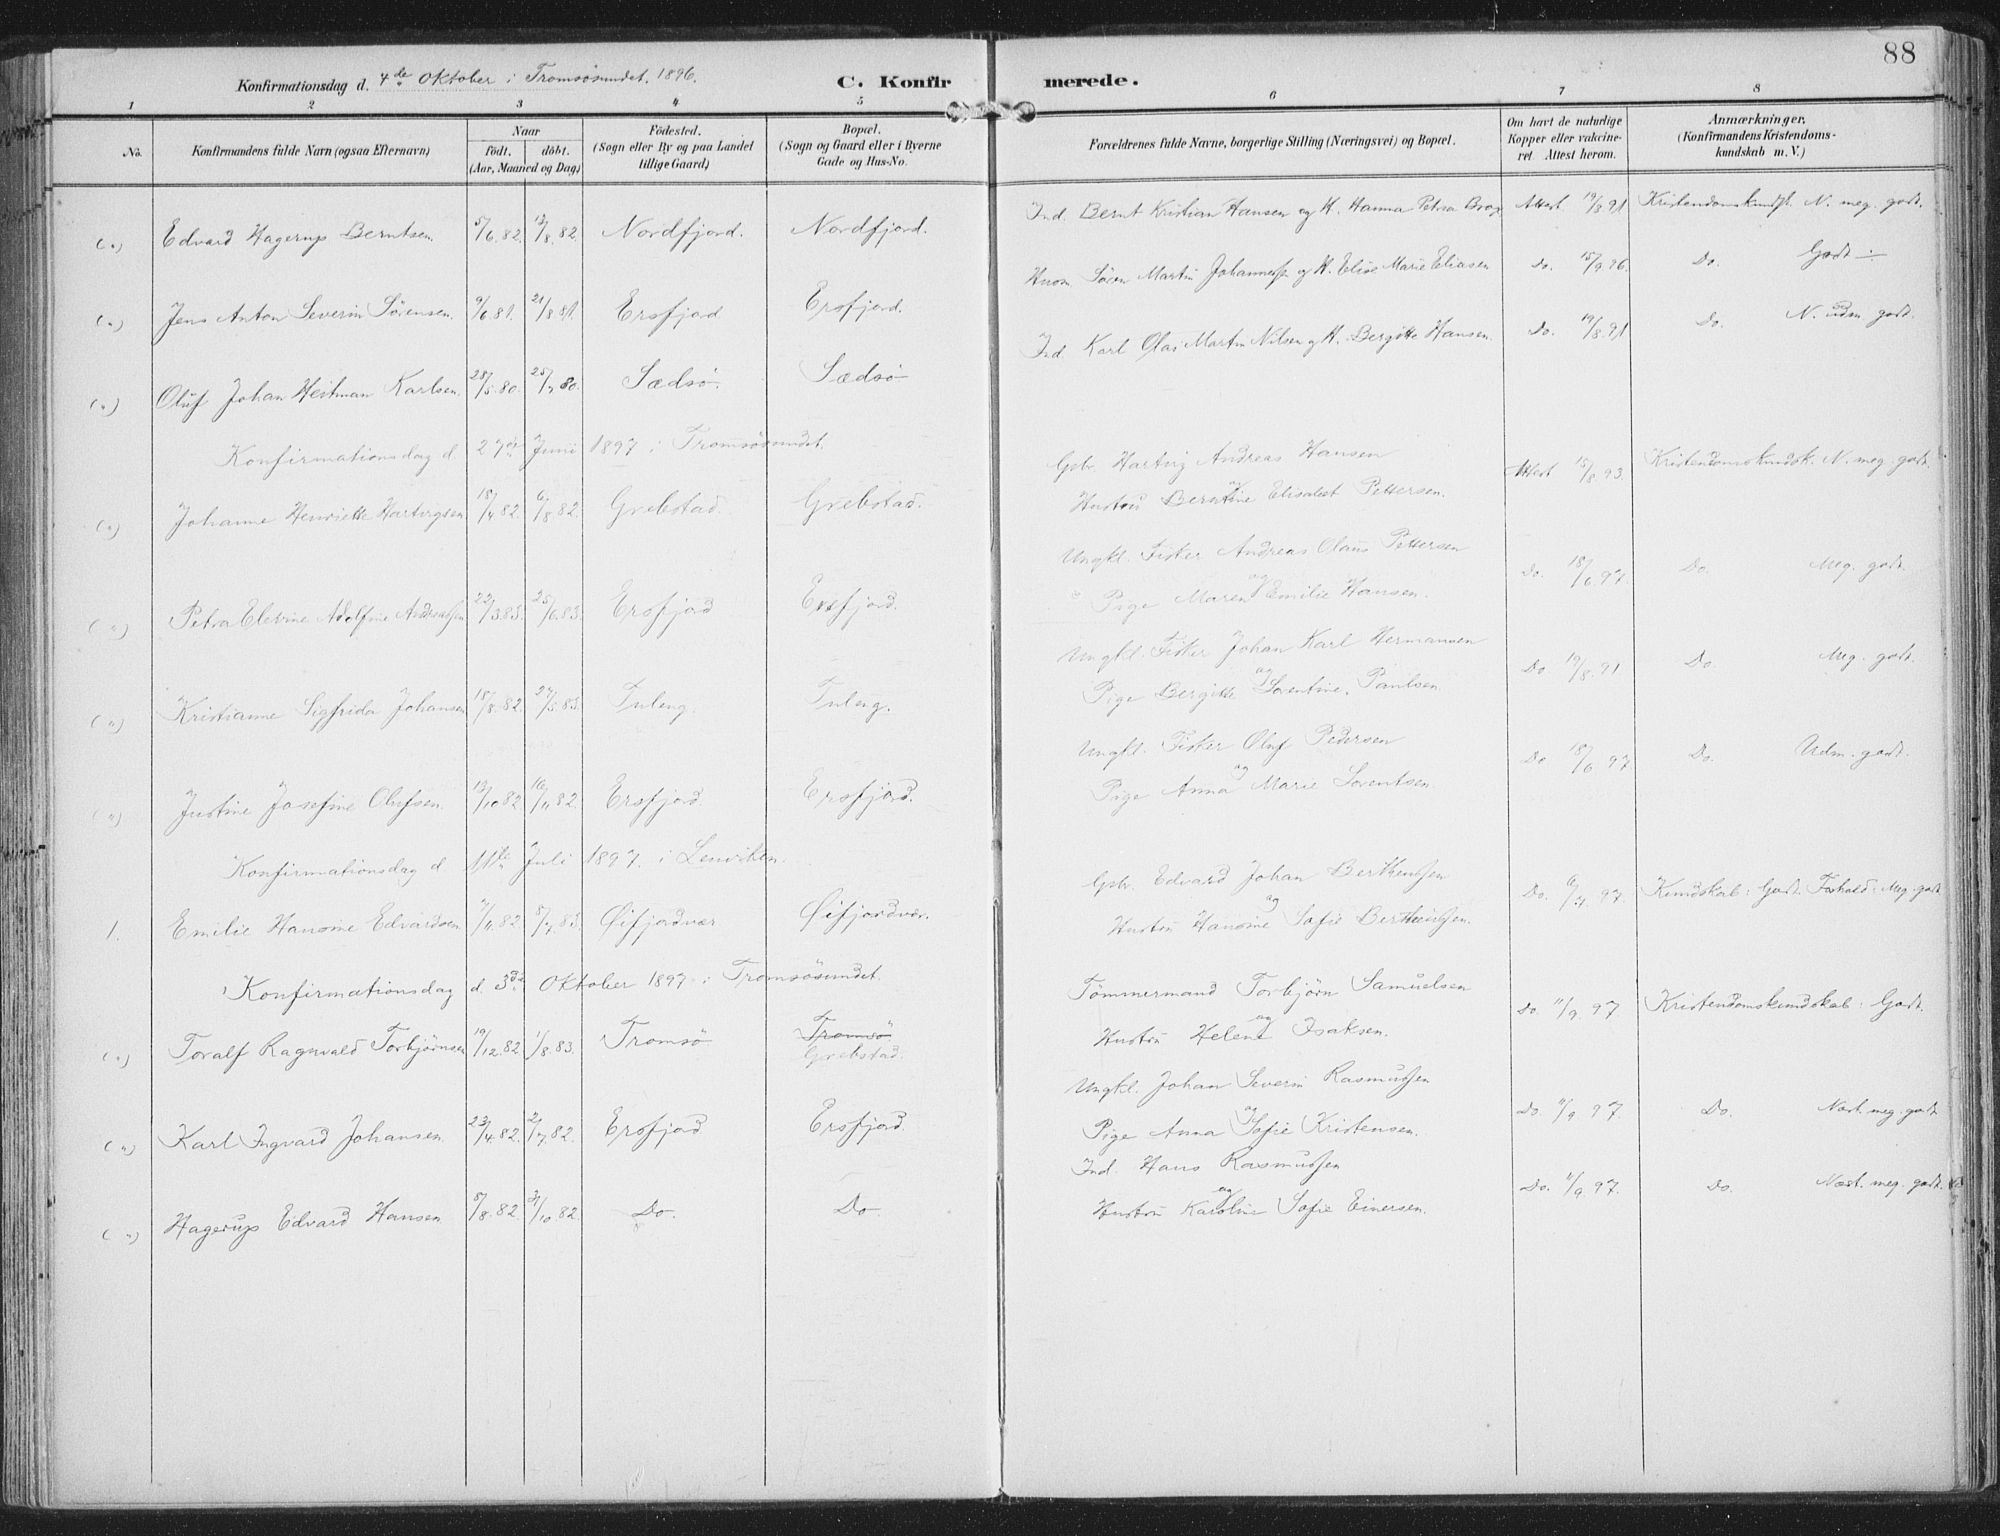 88
Konfirmationsdag d. 4de Oktober i Tromsøsundet. 1896.
C. Konfirmerede.
1 2 3 4 5 6 7 8
No.
Konfirmandens fulde Navn (ogsaa Efternavn)
Naar
födt. döbt.
(Aar, Maaned og Dag)
Födested.
(Sogn eller By og paa Landet
tillige Gaard)
Bopæl.
(Sogn og Gaard eller i Byerne
Gade og Hus-No.
Forældrenes fulde Navne, borgerlige Stilling (Næringsvei) og Bopæl.
Om havt de naturlige
Kopper eller vakcine-
ret Attest herom.
Anmærkninger.
(Konfirmandens Kristendoms-
kundskab m. V.)
(") Edvard Hagerup Berntsen 5/6.82. 13/8.82. Nordfjord. Nordfjord. Ind. Bernt Kristian Hansen og H. Hanna Petra Attest 19/8.91 Kristendomskundsk. N. meg. godt.
(") Jens Anton Severin Sörensen. 9/6.81. 21/8.81. Ersfjord Ersfjord. Husm. Sören Martin og H. Elise Marie Eliasen Do. 15/9.96. Do. Godt
(") Oluf Johan Heitman Karlsen. 28/5.80. 25/7.80. Sædsö. Sædsö Ind. Karl Olai Martin Nilsen og H. Bergitte Hansen. Do. 19/8.91 Do. N. udm. godt.
Konfirmationsdag d. 27de Juni 1897 i Tromsösundet.
(") Johanne Henriette Hartvigsen 18/4.82. 6/8.82. Grebstad. Grebstad. Gbr. Hartvig Andreas Hansen
og
Hustru Berntine Elisabet Pettersen. Attest 15/8.93. Kristendomskundsk. N. meg. godt.
(") Petra Elevine Adolfine Andreassen 22/3.83. 25/6.83. Ersfjord Ersfjord. Ungkl. Fisker Andreas Olaus Pettersen
og
Pige Maren Emilie Hansen. Do. 18/6.97. Do. Meg. godt.
(") Kristianne Sigfrida Johansen 15/8.82. 27/5.83. Tuleng. Tuleng. Ungkl. Fisker Johan Karl Hermansen
og
Pige Bergitte Lorentine Paulsen Do 19/8.91 Do. Meg. godt.
(") Justine Josefine Olufsen. 13/10.82 16/11.82. Ersfjord. Ersfjord. Ungkl. Fisker Oluf Pedersen
og
Pige Anna Marie Lorentsen. Do 18/6 97 Do. Udm. godt.
Konfirmationsdag d 11te Juli 1897. i Lenviken.
1. Emilie Hansine Edvardsen 8/7.83. Öifjordvær Öifjordvær. Gbr. Edvard Johan Bertheussen
og
Hustru Hansine Sofie Bertheussen. Do. Kundskab: Godt. Forhold: Meg. godt
Konfirmationsdag d. 3de Oktober 1897 i Tromsösundet.
(") Toralf Ragnvald Torbjörnsen 19/12.82 1/8.83. Tromsö Tromsö
Grebstad. Tömmermand Torbjörn Samuelsen
og
Hustru Helene Isaksen. Do. 11/9.97. Kristendomskundskab: Godt.
(") Karl Ingvard Johansen 23/4.82. 2/7.82. Ersfjord Ersfjord. Ungkl. Johan Severin Rasmussen
og
Pige Anna Sofie Kristensen. Do. 11/9.97. Do. Næst. meg. godt
(") Hagerup Edvard Hansen 5/8.82. /10.82. Do. Do. Ind. Hans Rasmussen
og
Hustru Karoline Sofie Einersen. Do. 11/9.97. Do. Næst. meg. godt.